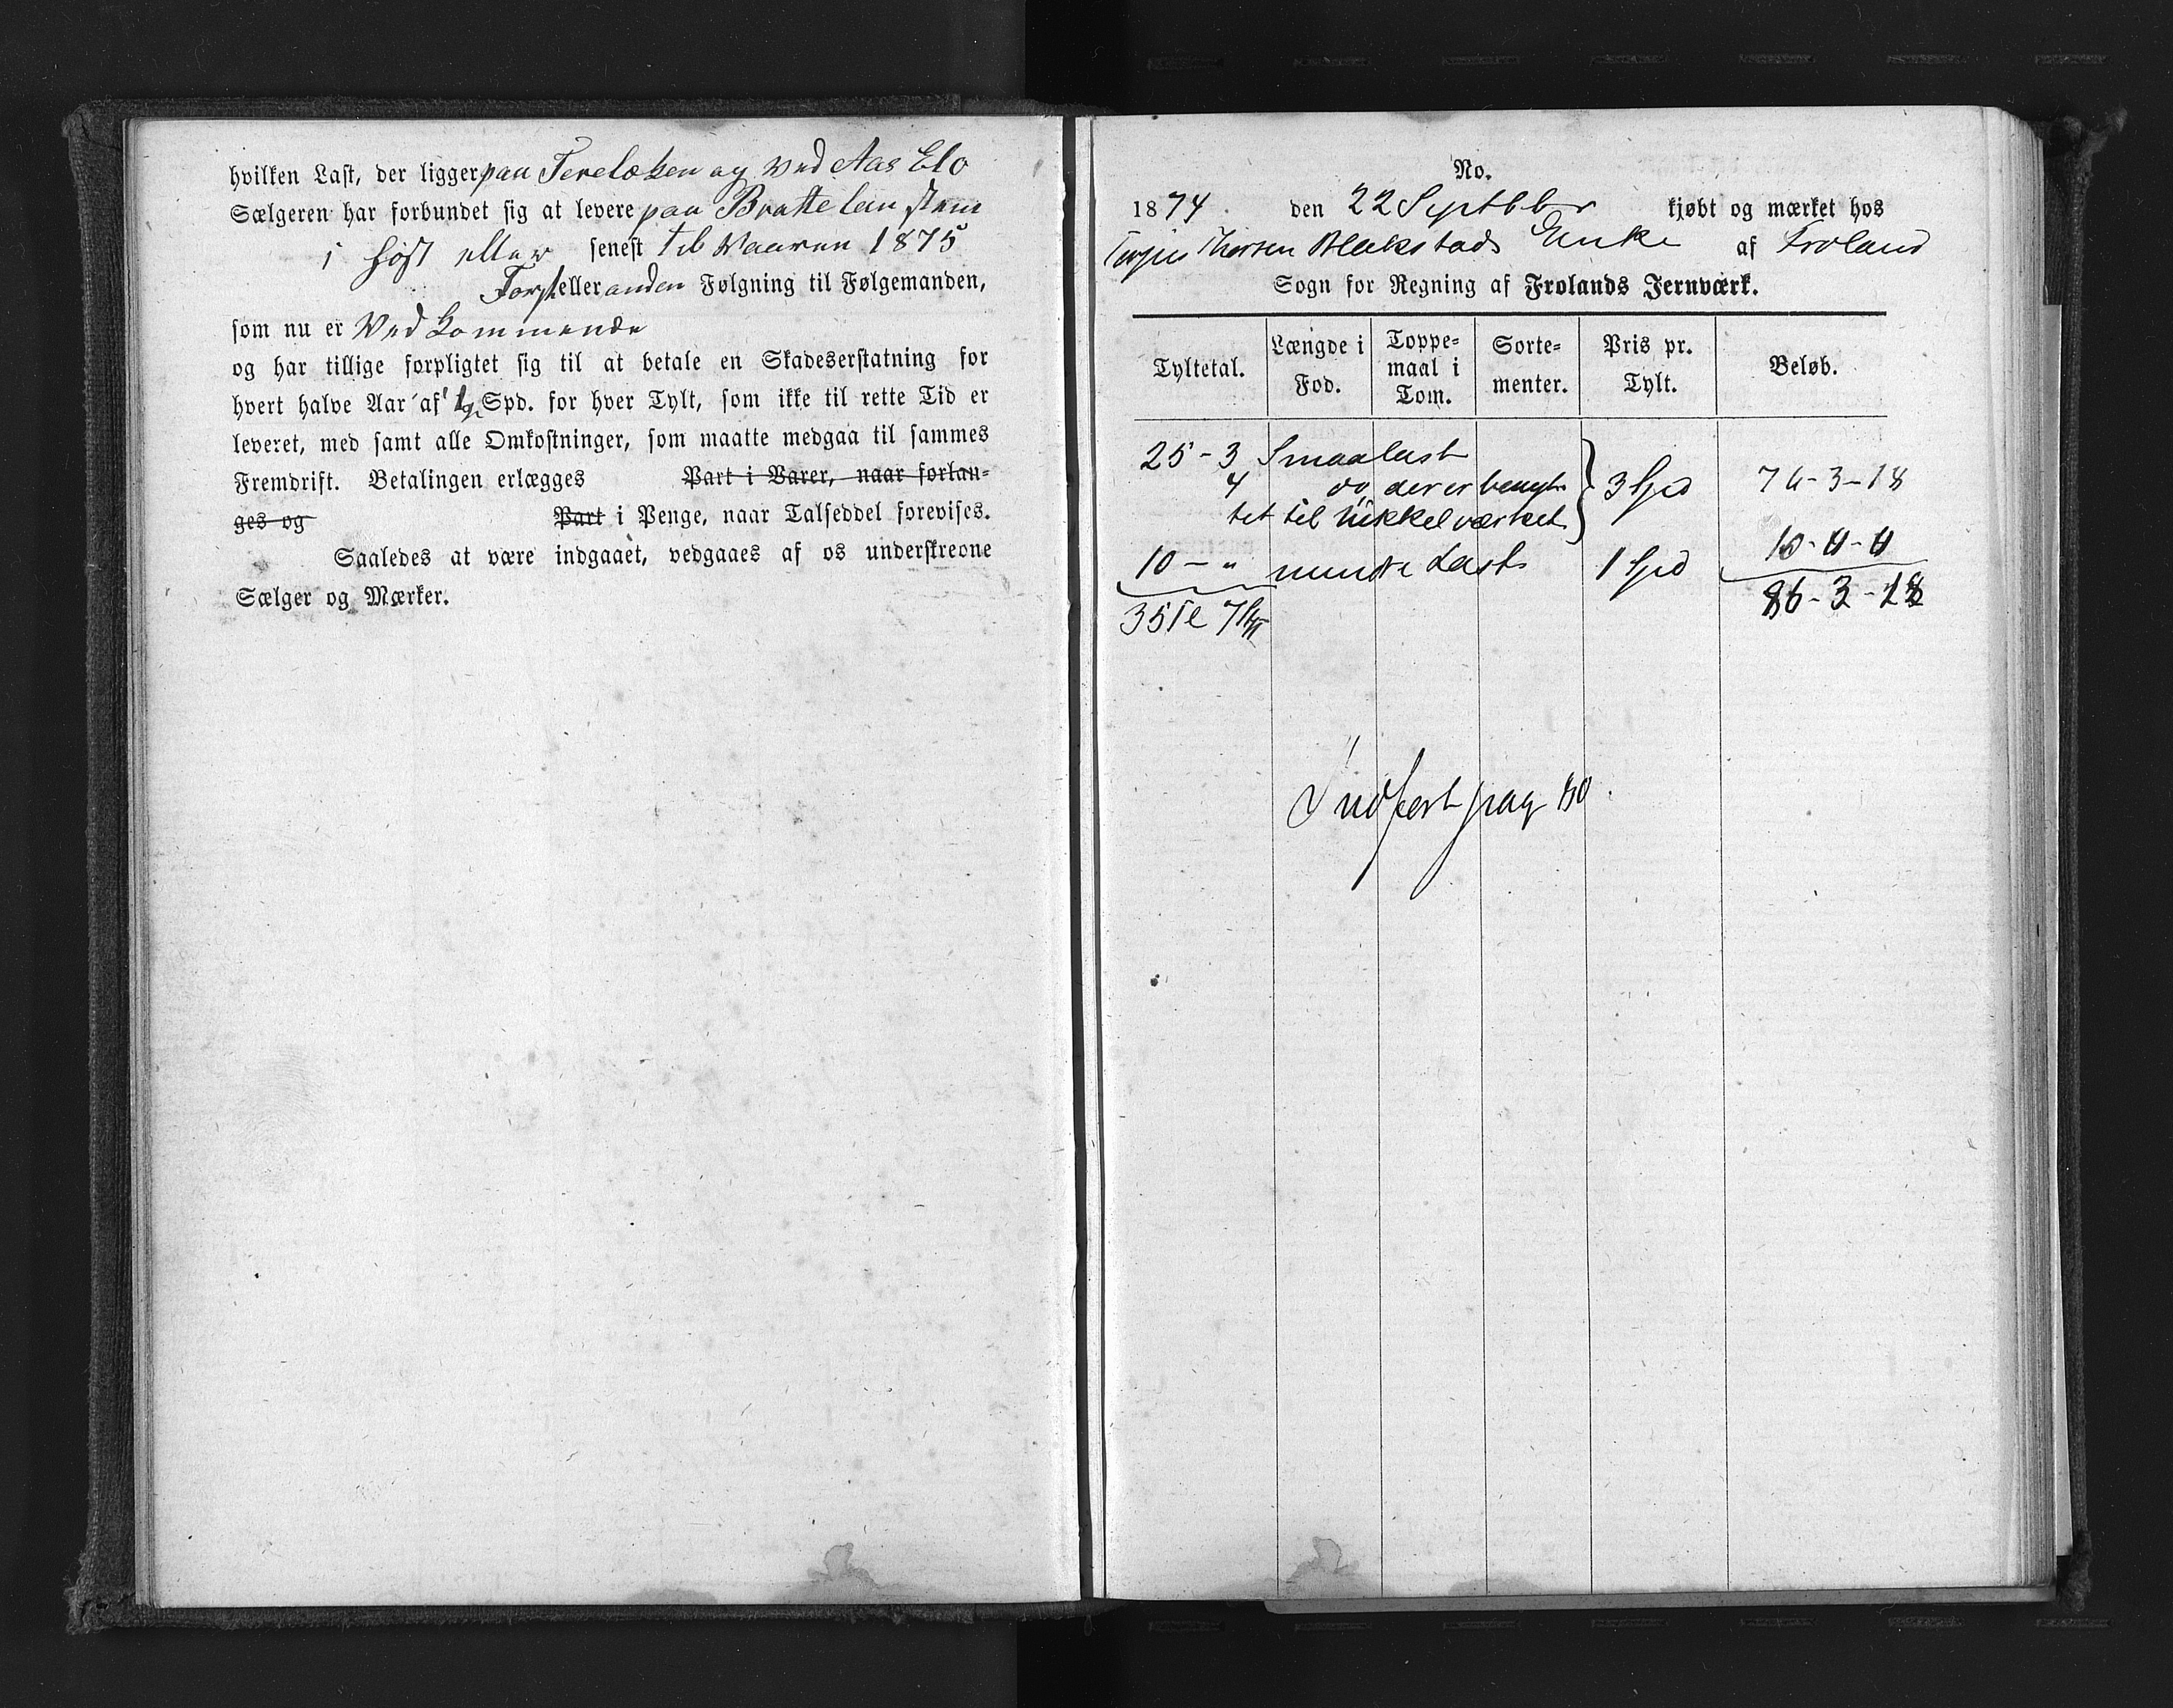 hvilken Last, der ligger paa Terelæken og Ved Aas Elv
Sælgeren har forbundet sig at levere paa Brattelan strax
i høst eller senest til Vaaren 1875
Først eller anden Følgning til Følgemanden,
som nu er Vedkommende
og har tillige forpligtet sig til at betale en Skadeserstatning for
hvert halve Aar af 1/2 Spd. for hver Tylt, som ikke til rette Tid er
leveret, med samt alle Omkostninger, som maatte medgaa til sammes
Fremdrift. Betalingen erlægges Part i Varer, naar forlan-
ges og Part i Penge, naar Talseddel forevises.
Saaledes at være indgaaet, vedgaaes af os underskrevne
Sælger og Mærker.
No.
1874 den 22 Septbbr kjøbt og mærket hos
Terjus Thorsen Blakstads Enke af Froland
Sogn for Regning af Frolands Jernværk.
Tyltetal. Længde i Fod. Toppemaal i Tom. Sortementer. Pris pr. Tylt. Beløb.
25 - 3 Smaalast
4 do der er benyt- 3 Spd 76-3-18
tet til Nikkelværket
10 - " mindre Last 1 Spd 10-0-0
35 Tl 7 86-3-18
Indført pag 80.